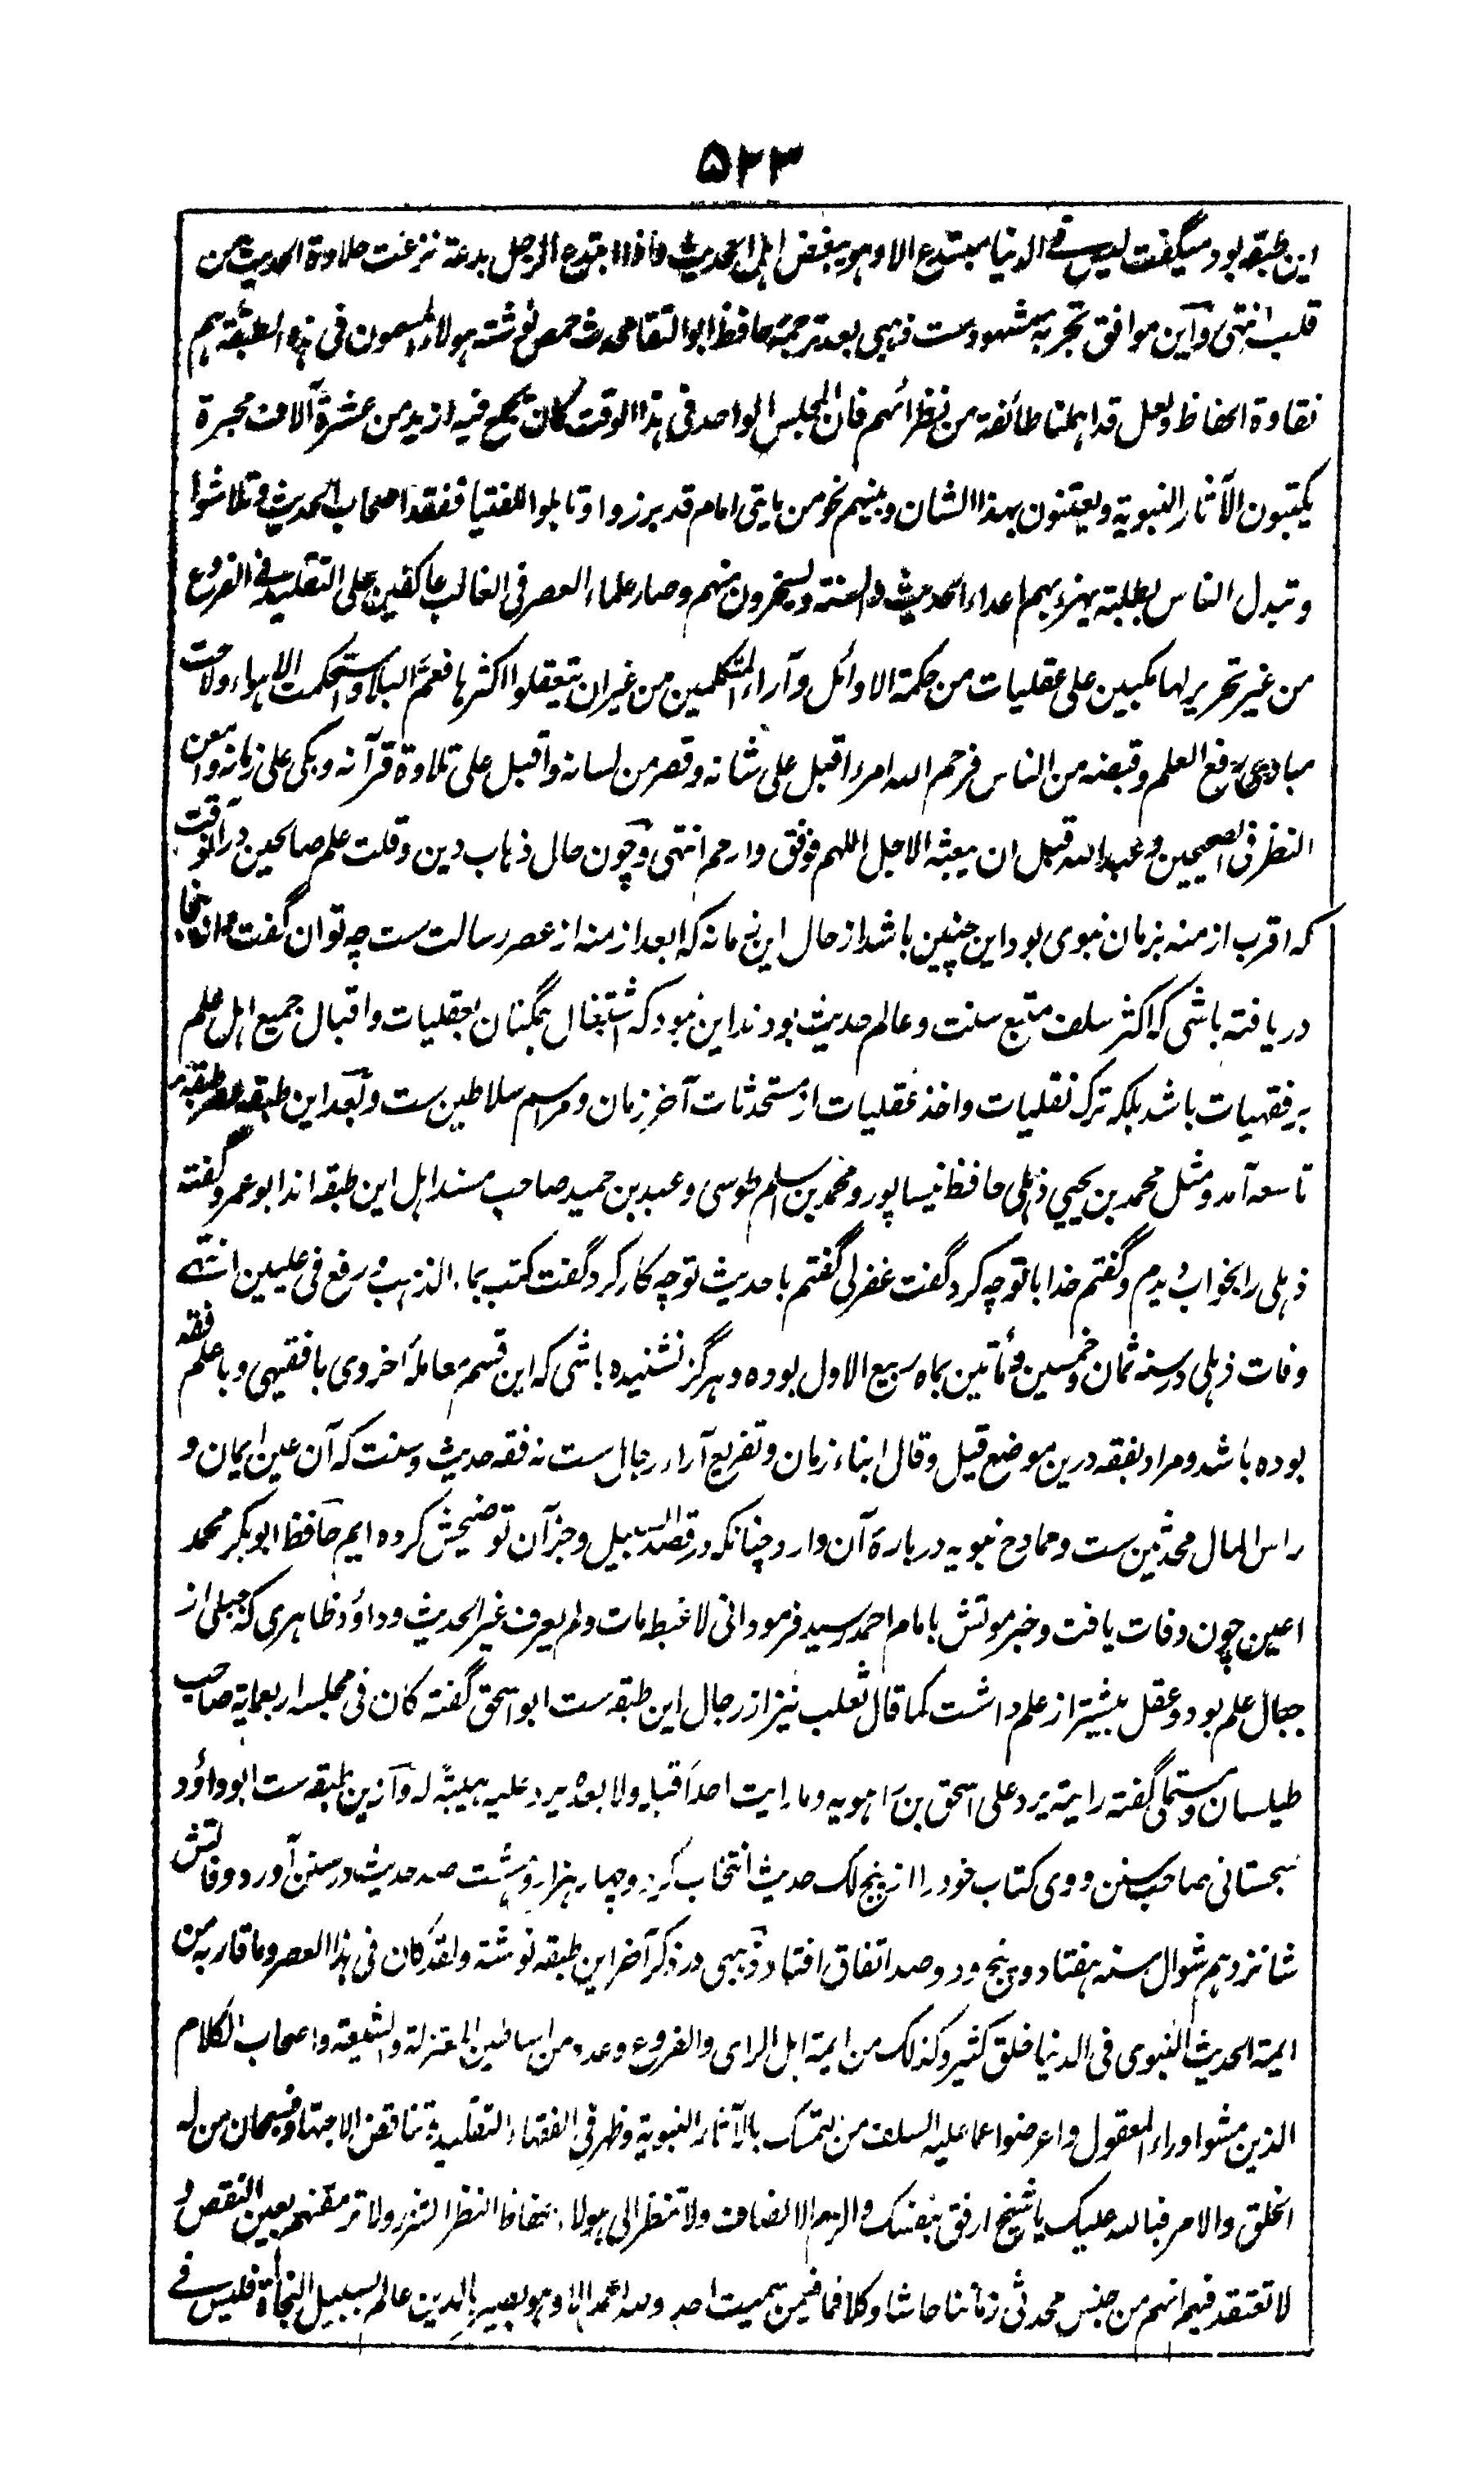 ۵۲۳
این طبقه بود میگفت لیس فی الدنیا مبتدع الا وهو یبغض اهل الحدیث فاذا ابتدع الرجل بدعة نزعت حلاوة الحدیث من
قلبه انتهی و این موافق تجربه مشهودست ذهبی بعد ترجمهٔ حافظ ابو التقا محدث حمص نوشته هولاء المسمون فی هذه الطبقة هم
نقاوة الحفاظ ولعل قد اهملنا طائفة من نظرائهم فان المجلس الواحد فی هذا الوقت کان یجمع فیه ازید من عشرة آلاف محبرة
یکتبون الآثار النبویة ویعتنون بهذا الشان وبینهم نحو من مایتی امام قد برزوا وتاهلوا للفتیا فقد اصحاب الحدیث وتلاشوا
وتبدل الناس بطلبة یهزء بهم اعداء الحدیث والسنة ویسخرون منهم وصار علماء العصر فی الغالب عاکفین علی التقلید فی الفروع
من غیر تحریر لها مکبین علی عقلیات من حکمة الاوائل وآراء المتکلمین من غیر ان یتعقلوا اکثرها فعم البلاء واستحکمت الاهواء ولاحت
مبادی رفع العلم وقبضه من الناس فرحم الله امرء اقبل علی شانه وقصر من لسانه واقبل علی تلاوة قرآنه وبکی علی زمانه وامعن
النظر فی الصحیحین وعبد الله قبل ان یبغته الاجل اللهم فوفق وارحم انتهی و چون حال ذهاب دین و قلت علم صالحین در آنوقت
که اقرب ازمنه بزمان نبوی بود این چنین باشد از حال این زمانه که ابعد ازمنه از عصر رسالت ست چه توان گفت و از ینجا
دریافته باشی که اکثر سلف متبع سنت و عالم حدیث بودند این نبود که اشتغال همگنان بعقلیات و اقبال جمیع اهل علم
بر فقهیات باشد بلکه ترک نقلیات و اخذ عقلیات از مستحدثات آخر زمان و مراسم سلاطین ست و بعد این طبقه عصر طبقه
تاسعه آمد و مثل محمد بن یحیی ذهلی حافظ نیساپور و محمد بن اسلم طوسی و عبد بن حمید صاحب مسند اهل این طبقه اند ابو عمرو گفته
ذهلی را بخواب دیدم و گفتم خدا با تو چه کرد گفت غفر لی گفتم با حدیث تو چه کار کرد گفت کتب بماء الذهب و رفع فی علیین انتهی
وفات ذهلی در سنه ثمان و خمسین و مأتین بماه ربیع الاول بوده و هرگز نشنیده باشی که این قسم معاملهٔ اخروی با فقیهی و با علم فقه
بوده باشد و مراد بفقه درین موضع قیل و قال ابناء زمان و تفریع آراء رجال ست نه فقه حدیث و سنت که آن عین ایمان و
راس المال محدثین ست و ممادح نبویه دربارهٔ آن وارد چنانکه در قصد السبیل و جز آن توضیحش کرده ایم حافظ ابوبکر محمد
اعین چون وفات یافت و خبر موتش با مام احمد رسید فرمود انی لاغبطه مات ولم یعرف غیر الحدیث و داؤد ظاهری که جبلی از
جبال علم بود و عقل بیشتر از علم داشت کما قال ثعلب نیز از رجال این طبقه ست ابو اسحق گفته کان فی مجلسه اربعمایة صاحب
طیلسان و مستملی گفته رایته یرد علی اسحق بن راهویه وما رایت احدا قبله ولا بعده یرد علیه هیبة له و از ین طبقه ست ابو داؤد
سجستانی صاحب سنن و وی کتاب خود را از پنج لک حدیث انتخاب کرده و چهار هزار و هشت صد حدیث در سنن آورد وفاتش
شانزدهم شوال سنه هفتاد و پنج و دو صد اتفاق افتاد ذهبی در ذکر آخر این طبقه نوشته ولقد کان فی هذا العصر وما قاربه من
ایمة الحدیث النبوی فی الدنیا خلق کثیر وکذلک من ایمة اهل الرای والفروع وعدد من اساطین المعتزلة والشیعة واصحاب الکلام
الذین مشوا وراء المعقول واعرضوا عما علیه السلف من التمسک بالآثار النبویة وظهر فی الفقهاء التقلید وتناقض الاجتهاد فسبحان من له
الخلق والامر فبالله علیک یا شیخ ارفق بنفسک والزم الانصاف ولا تنظر الی هولاء الحفاظ النظر الشزر ولا ترمقنهم بعین النقص و
لا تعتقد فیهم انهم من جنس محدثی زماننا حاشا وکلا فما فیمن سمیت احد ولله الحمد الا وهو بصیر بالدین عالم بسبیل النجاة فلیس فی